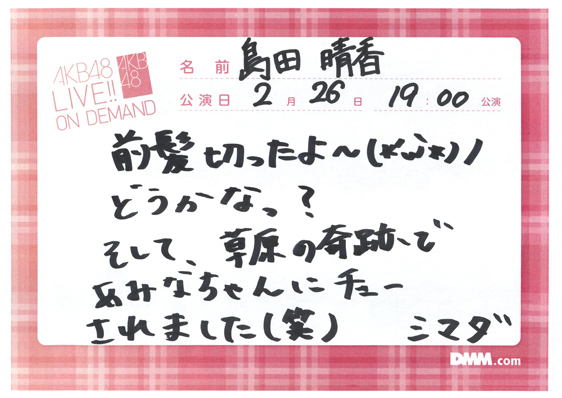 AKB48
LIVE!!
ON DEMAND
AKB
48
名前 島田 晴香
公演日 2月 26日 19:00 公演
前髪切ったよ〜(*'ω'*)ノ
どうかなっ?
そして、草原の奇跡で
あみなちゃんにチュー
されました(笑) シマダ
DMM.com